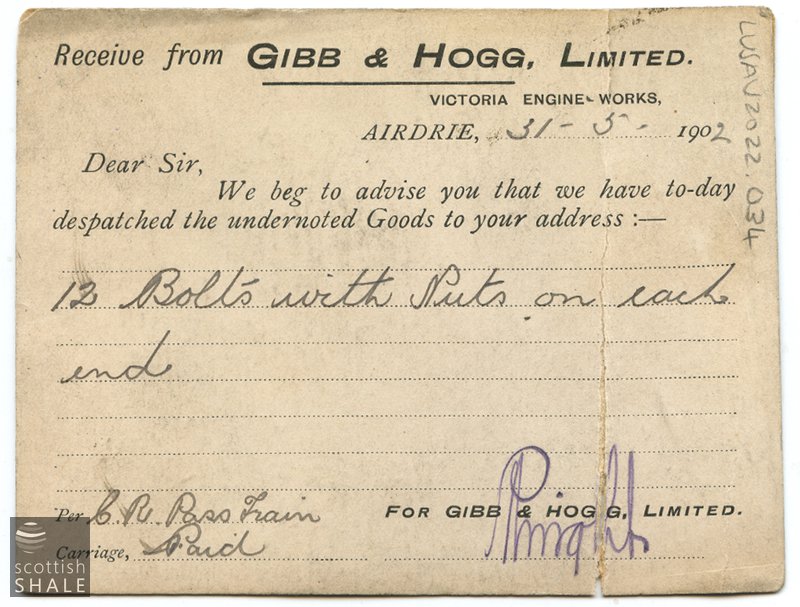 Receive from GIBB & HOGG, LIMITED.
VICTORIA ENGINE WORKS,
AIRDRIE, 31 - 5 - 1902
Dear Sir,
We beg to advise you that we have to-day
despatched the undernoted Goods to your address :—
12 Bolts with Nuts on each
end
Per C. R. Pass Train
FOR GIBB & HOGG, LIMITED.
Carriage, Paid
LVSAV2022.034
scottish
SHALE